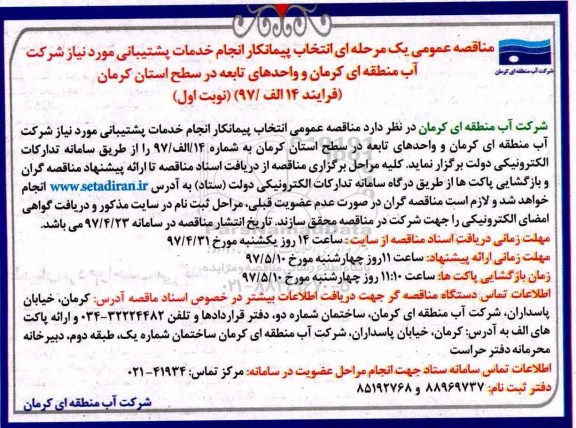 مناقصه عمومی یک مرحله ای انتخاب پیمانکار انجام خدمات پشتیبانی مورد نیاز شرکت
آب منطقه ای کرمان و واحدهای تابعه در سطح استان کرمان
(فرایند ۱۴ الف /۹۷) (نوبت اول)
شرکت آب منطقه ای کرمان
شرکت آب منطقه ای کرمان در نظر دارد مناقصه عمومی انتخاب پیمانکار انجام خدمات پشتیبانی مورد نیاز شرکت
آب منطقه ای کرمان و واحدهای تابعه در سطح استان کرمان به شماره ۱۴/الف/۹۷ را از طریق سامانه تدارکات
الکترونیکی دولت برگزار نماید. کلیه مراحل برگزاری مناقصه از دریافت اسناد مناقصه تا ارائه پیشنهاد مناقصه گران
و بازگشایی پاکت ها از طریق درگاه سامانه تدارکات الکترونیکی دولت (ستاد) به آدرس www.setadiran.ir انجام
خواهد شد و لازم است مناقصه گران در صورت عدم عضویت قبلی، مراحل ثبت نام در سایت مذکور و دریافت گواهی
امضای الکترونیکی را جهت شرکت در مناقصه محقق سازند. تاریخ انتشار مناقصه در سامانه ۹۷/۴/۲۳ می باشد.
مهلت زمانی دریافت اسناد مناقصه از سایت : ساعت ۱۴ روز یکشنبه مورخ ۹۷/۴/۳۱
مهلت زمانی ارائه پیشنهاد: ساعت ۱۱ روز چهارشنبه مورخ ۹۷/۵/۱۰
زمان بازگشایی پاکت ها: ساعت ۱۱:۱۰ روز چهارشنبه مورخ ۹۷/۵/۱۰
اطلاعات تماس دستگاه مناقصه گر جهت دریافت اطلاعات بیشتر در خصوص اسناد ماقصه آدرس: کرمان، خیابان
پاسداران، شرکت آب منطقه ای کرمان، ساختمان شماره دو، دفتر قراردادها و تلفن ۳۲۲۲۴۴۸۲-۰۳۴ و ارائه پاکت
های الف به آدرس: کرمان، خیابان پاسداران، شرکت آب منطقه ای کرمان ساختمان شماره یک، طبقه دوم، دبیرخانه
محرمانه دفتر حراست
اطلاعات تماس سامانه ستاد جهت انجام مراحل عضویت در سامانه: مرکز تماس: ۴۱۹۳۴-۰۲۱
دفتر ثبت نام: ۸۸۹۶۹۷۳۷ و ۸۵۱۹۲۷۶۸
شرکت آب منطقه ای کرمان